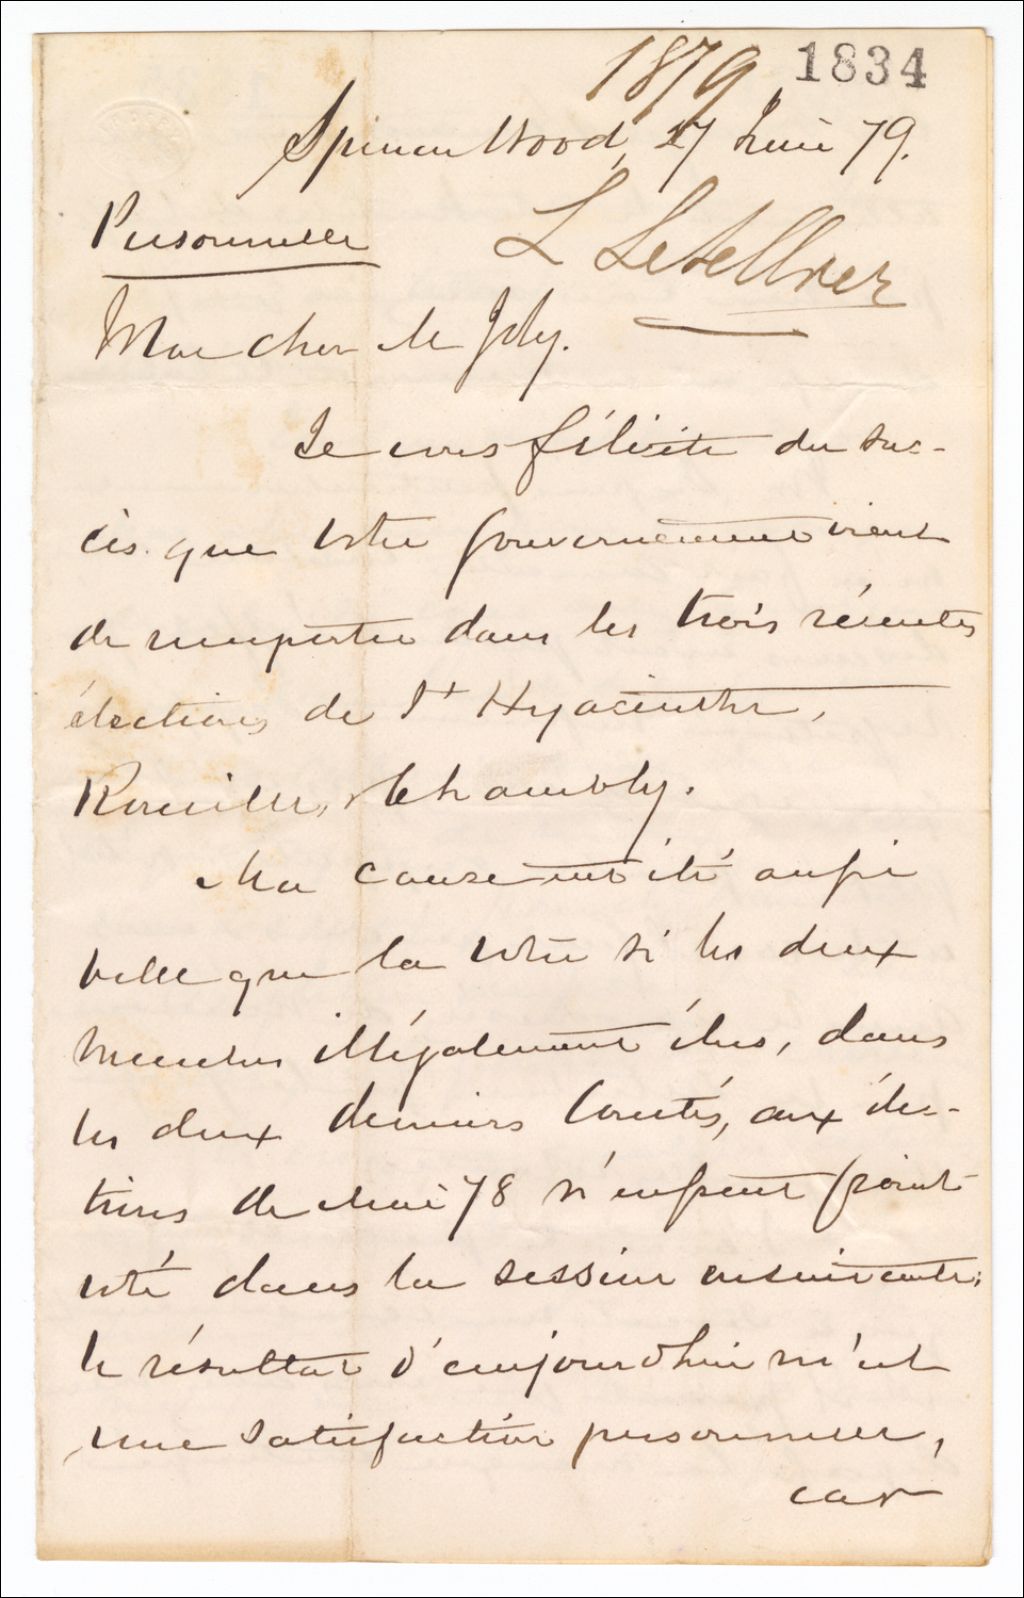 1879 1834
Spencer Wood, 17 Juin 79.
Personnelle
L Letellier
Mon cher de Joly.
Je vous félicite du suc-
cès que votre gouvernement vient
de remporter dans les trois récentes
élections de St Hyacinthe,
Rouville, & Chambly.
Ma cause eut été aussi
belle que la votre si les deux
membres illégalement élus, dans
les deux derniers Comtés, aux élec-
tions de Mai 78 n'eussent point
voté dans la session ensuivante;
le résultat d'aujourd'hui m'est
une satisfaction personnelle,
car